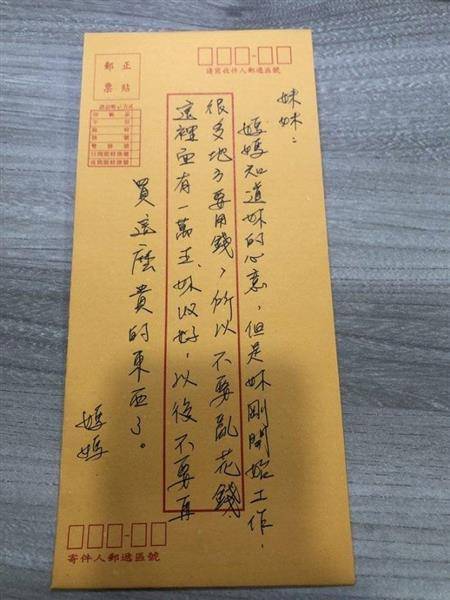 妹妹:
媽媽知道妹的心意,但是妹剛開始工作,
很多地方要用錢,所以不要亂花錢
這裡面有一萬五、妹收好,以後不要再
買這麼貴的東西了。
媽媽
請寫收件人郵遞區號
正貼
郵票
寄件人郵遞區號